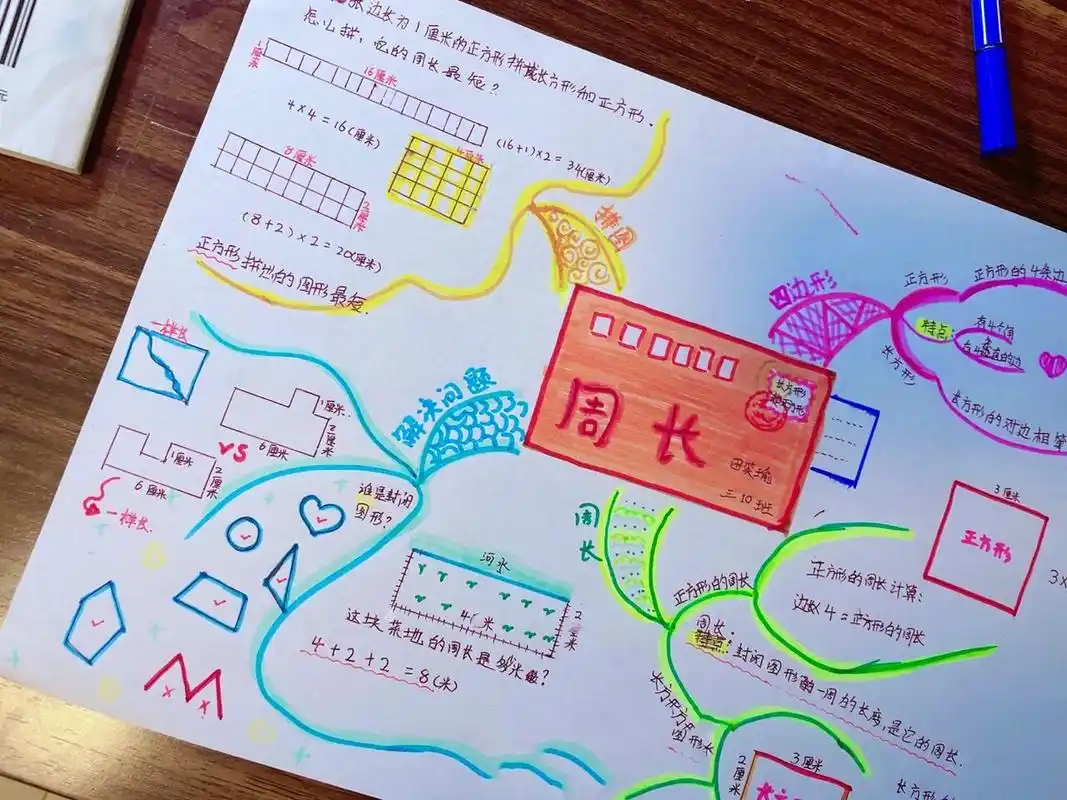 边长为1厘米的正方形拼成长方形和正方形.
怎么拼,它的周长最短?
1厘米
16厘米
4×4=16(厘米)
(16+1)×2=34(厘米)
8厘米
4厘米
2厘米
(8+2)×2=20(厘米)
正方形拼出的图形最短.
拼图
四边形
正方形
正方形的4条边
特点:
有4个角
长方形
长方形的对边相等
一样长
解决问题
1厘米
2厘米
6厘米
VS
1厘米
2厘米
6厘米
一样长
谁是封闭
图形?
长方形
周长
三10班
周长
正方形的周长
正方形的周长计算:
边长×4=正方形的周长
周长:
特点:封闭图形一周的长度,是它的周长.
3厘米
正方形
3×
河水
4厘米
2厘米
这块菜地的周长是多少米?
4+2+2=8(米)
3厘米
2厘米
长方形
元